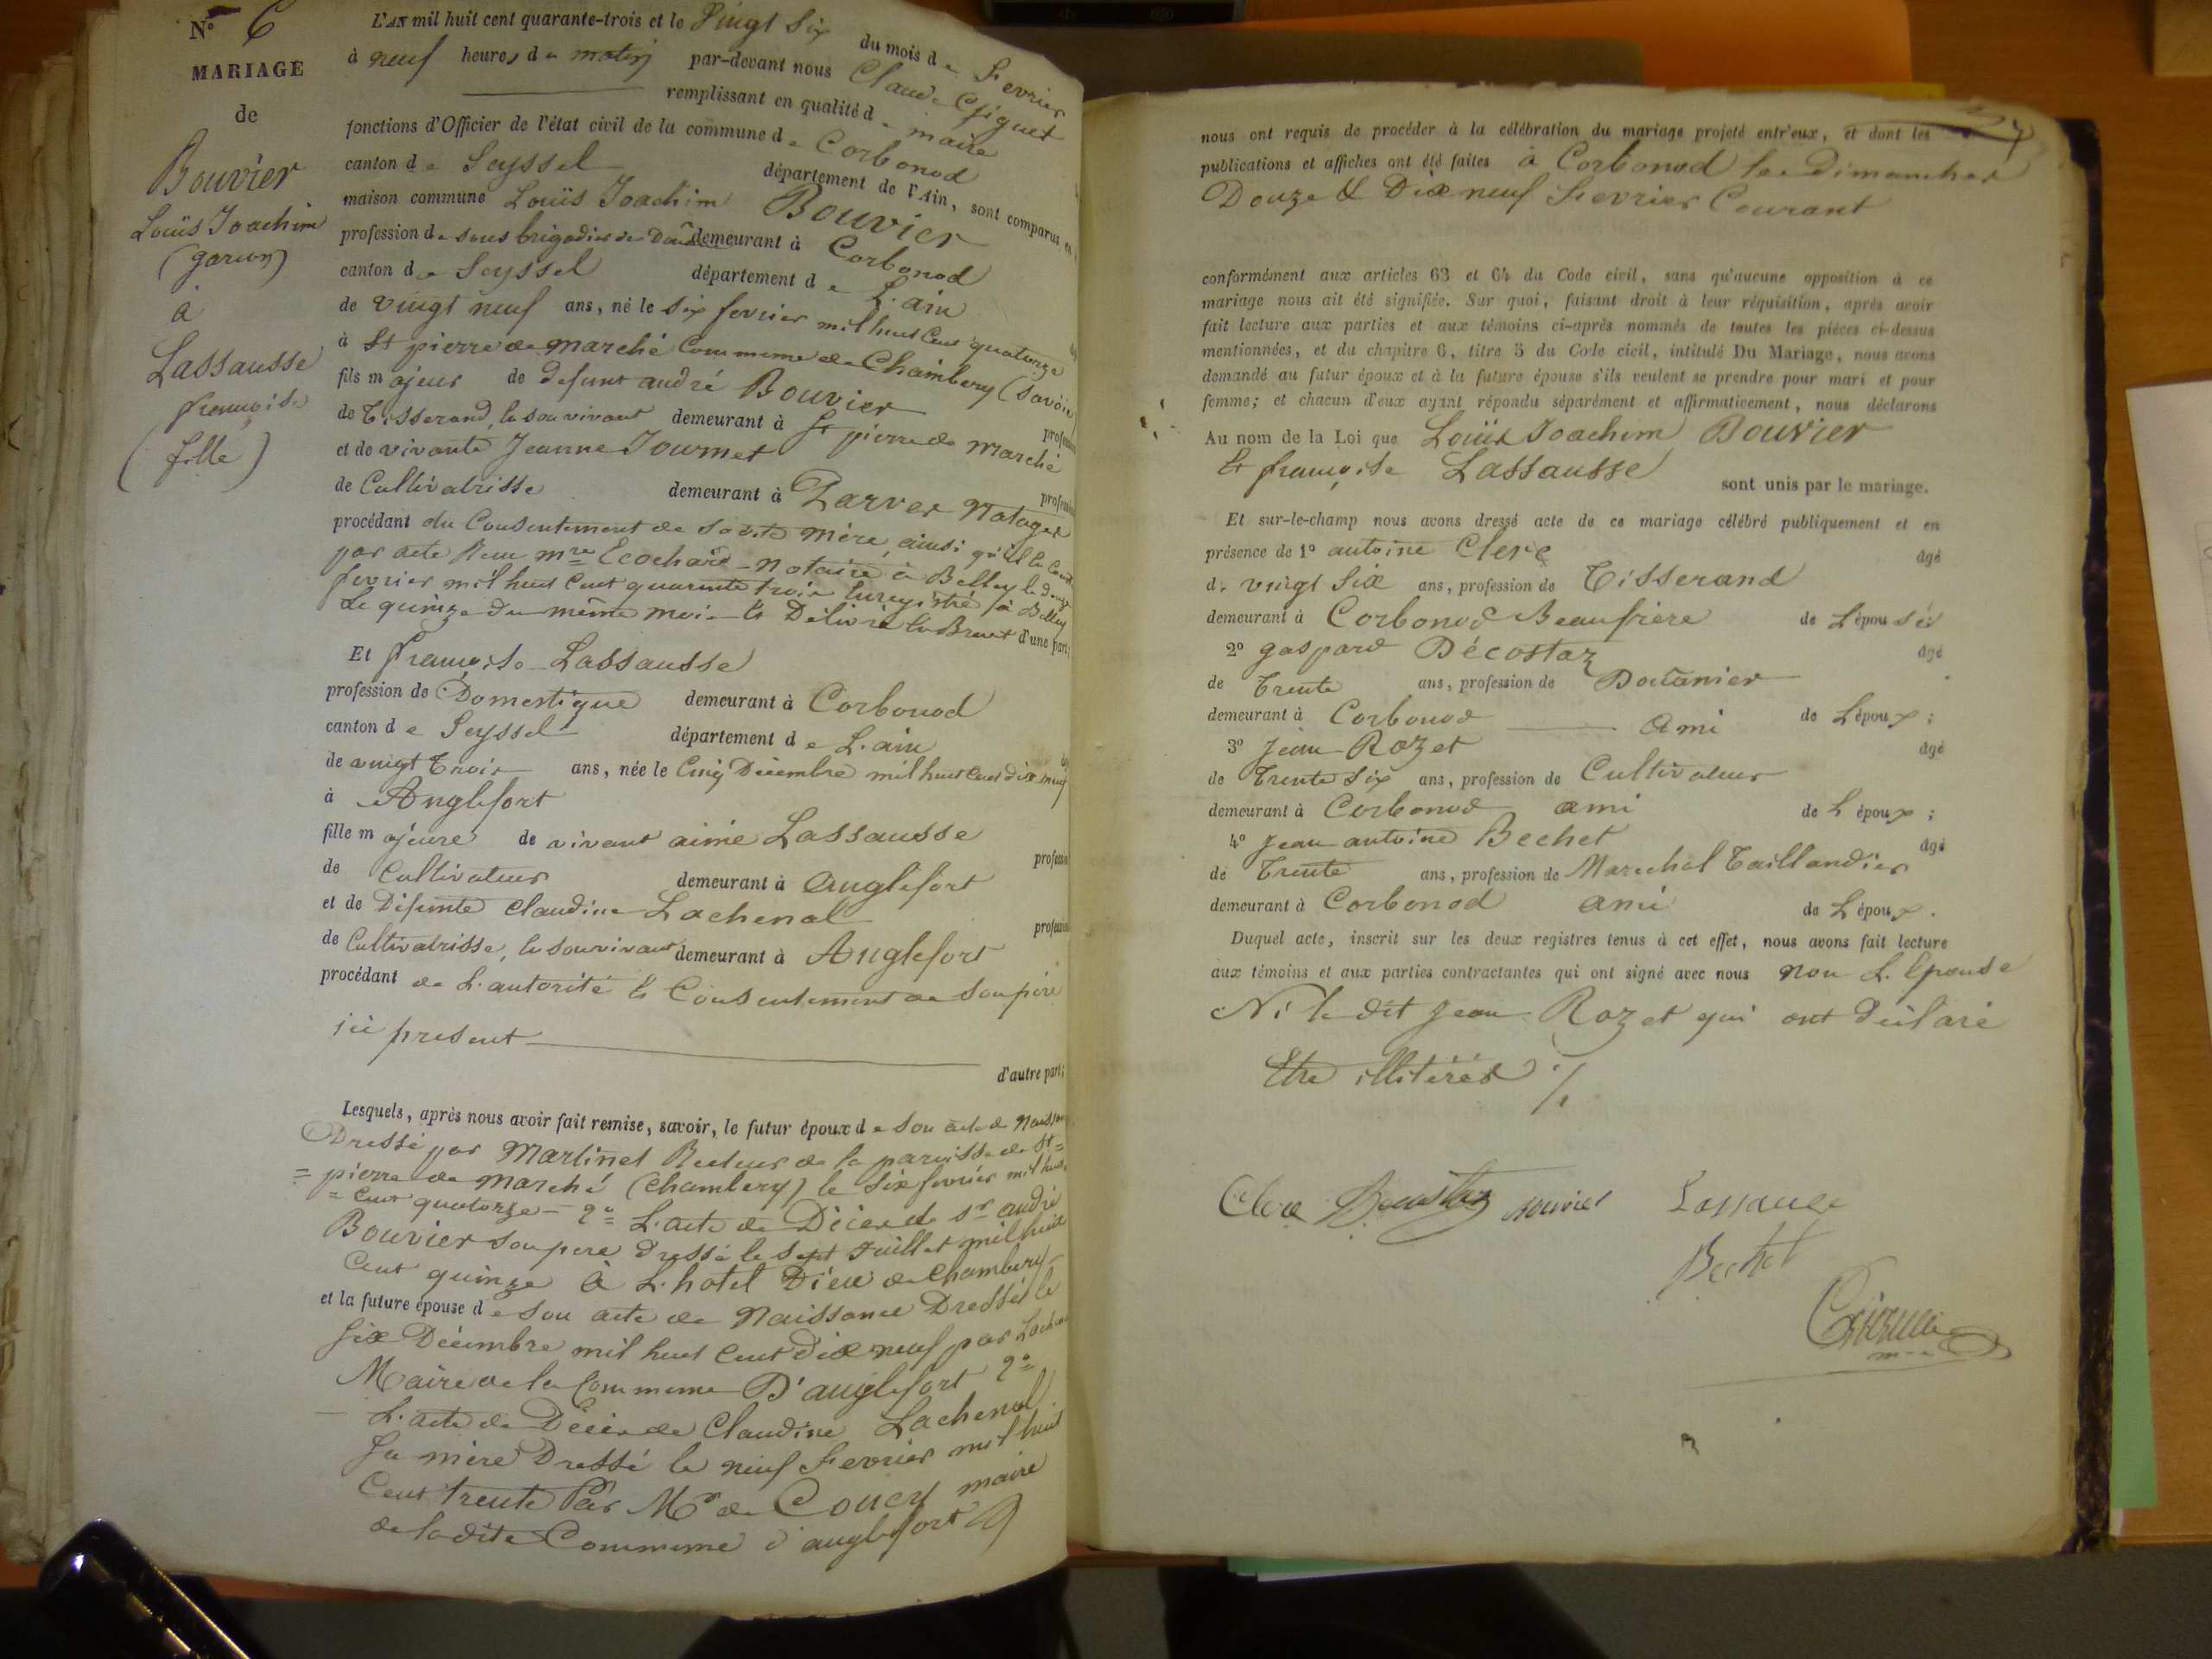 N° 6
MARIAGE
de
Bouvier
Louis Joachim
(garçon)
à
Lassausse
françoise
(fille)
L'AN mil huit cent quarante-trois et le Vingt Six du mois de Fevrier
à neuf heures du matin par-devant nous Claude
remplissant en qualité de maire
fonctions d'Officier de l'état civil de la commune de Corbonod
canton de Seyssel département de l'Ain, sont comparus en
maison commune Louis Joachim Bouvier
profession de sous brigadier de demeurant à Corbonod
canton de Seyssel département de L'ain
de vingt neuf ans, né le six fevrier mil huit Cent quatorze
à St pierre de marché Commune de Chambery (Savoie
fils majeur de defunt andré Bouvier
de Tisserand, de son vivant demeurant à St pierre de marché
et de vivante Jeanne Journet
de Cultivatrisse demeurant à
procédant du Consentement de sadite Mère, ainsi qu'il
par acte Reçu mre Ecochard Notaire à Belley le
fevrier mil huit Cent quarante trois Enregistré à Belley
Le quinze du même mois & Délivré En Brevet d'une part;
Et françoise Lassausse
profession de Domestique demeurant à Corbonod
canton de Seyssel département de L'ain
de vingt Trois ans, née le Cinq Décembre mil huit Cent dix neuf
à Anglefort
fille majeure de vivant aimé Lassausse
de Cultivateur demeurant à Anglefort
et de Défunte Claudine Lachenal
de Cultivatrisse, de son vivant demeurant à Anglefort
procédant de L'autorité & Consentement de son père
ici present
d'autre part;
Lesquels, après nous avoir fait remise, savoir, le futur époux de son acte de
Dressé par Martinel Recteur de la paroisse de St=
=pierre de Marché (Chambery) le Six fevrier mil huit
=Cent quatorze — 2° L'acte de Décès de Sr andré
Bouvier son pere dressé le sept Juillet mil huit
Cent quinze à L'hotel Dieu de Chambery
et la future épouse de son acte de Naissance Dressé le
Six Décembre mil huit Cent Dix neuf par
Maire de la Commune D'anglefort 2°
L'acte de Décès de Claudine Lachenal
Sa mère Dressé le neuf Fevrier mil huit
Cent trente Par Mr de Coucy maire
de ladite Commune d'anglefort
nous ont requis de procéder à la célébration du mariage projeté entr'eux, et dont les
publications et affiches ont été faites à Corbonod les Dimanches
Douze & Dix neuf Fevrier Courant
conformément aux articles 63 et 64 du Code civil, sans qu'aucune opposition à ce
mariage nous ait été signifiée. Sur quoi, faisant droit à leur réquisition, après avoir
fait lecture aux parties et aux témoins ci-après nommés de toutes les pièces ci-dessus
mentionnées, et du chapitre 6, titre 5 du Code civil, intitulé Du Mariage, nous avons
demandé au futur époux et à la future épouse s'ils veulent se prendre pour mari et pour
femme; et chacun d'eux ayant répondu séparément et affirmativement, nous déclarons
Au nom de la Loi que Louis Joachim Bouvier
Et françoise Lassausse sont unis par le mariage.
Et sur-le-champ nous avons dressé acte de ce mariage célébré publiquement et en
présence de 1° antoine Clerc âgé
de vingt Six ans, profession de Tisserand
demeurant à Corbonod Beaufrère de L'épouse
2° gaspard Décostaz âgé
de Trente ans, profession de Douanier
demeurant à Corbonod Ami de L'époux;
3° Jean Rozet âgé
de Trente Six ans, profession de Cultivateur
demeurant à Corbonod ami de L'époux;
4° Jean antoine Bechet âgé
de Trente ans, profession de Marechal Taillandier
demeurant à Corbonod ami de L'époux.
Duquel acte, inscrit sur les deux registres tenus à cet effet, nous avons fait lecture
aux témoins et aux parties contractantes qui ont signé avec nous Non L'épouse
Ni le dit Jean Rozet qui ont déclaré
Etre illitérés
Clerc Decostaz Bouvier Lassausse
Bechet